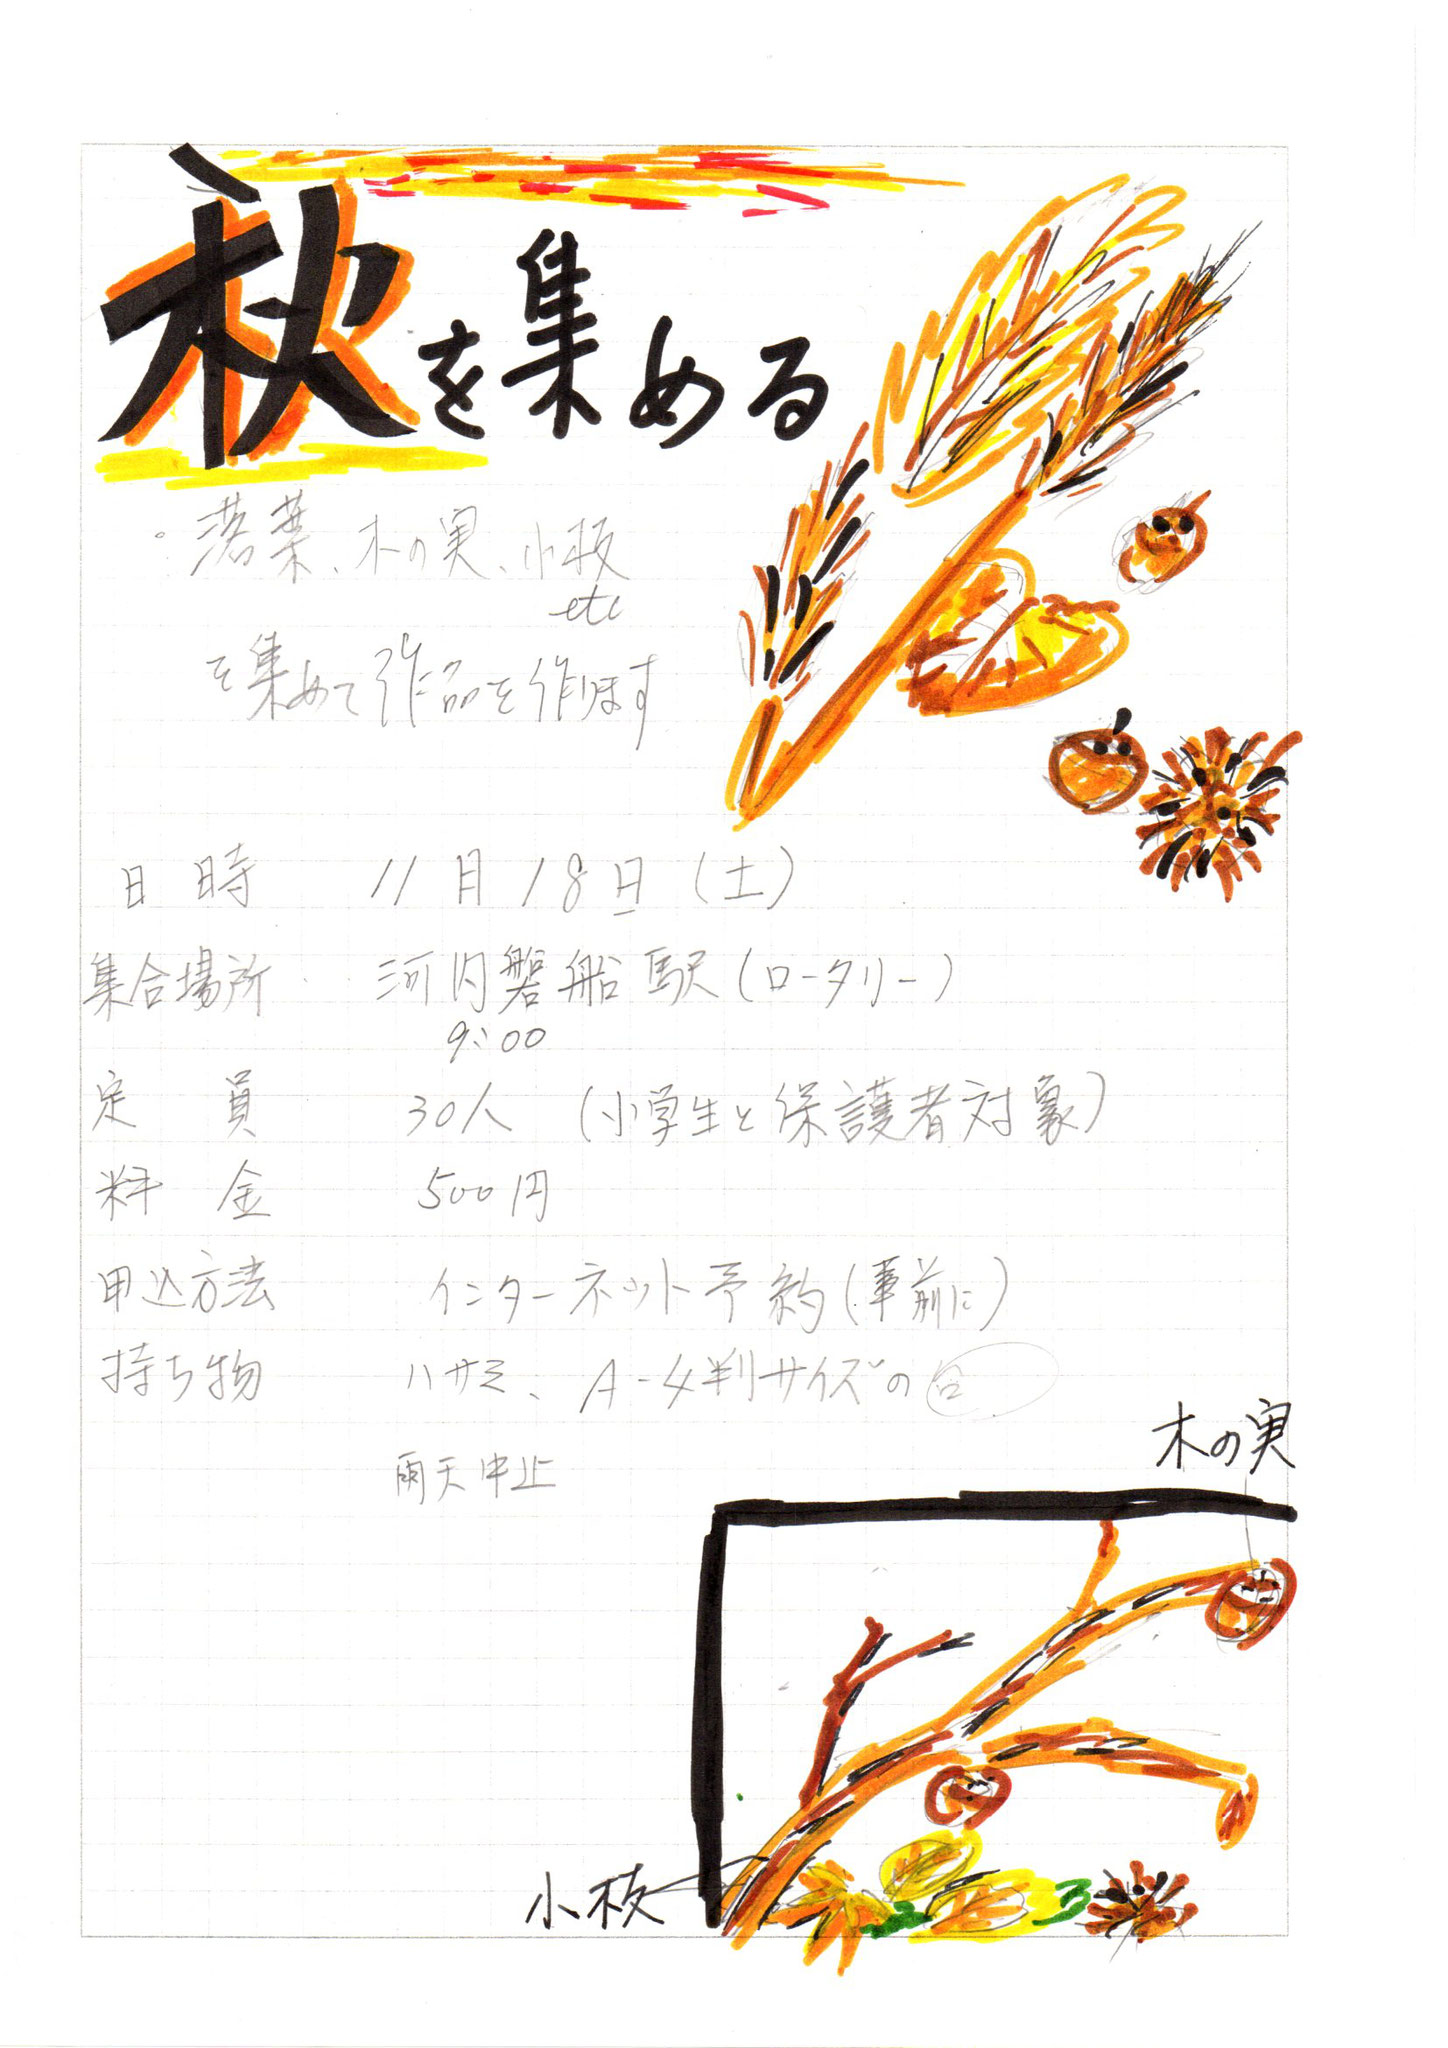 秋を集める
落葉、木の実、小枝
etc
を集めて作品を作ります
日時 11月18日(土)
集合場所 河内磐船駅(ロータリー)
9:00
定員 30人 (小学生と保護者対象)
料金 500円
申込方法 インターネット予約(事前に)
持ち物 ハサミ、A-4判サイズの台
雨天中止
木の実
小枝